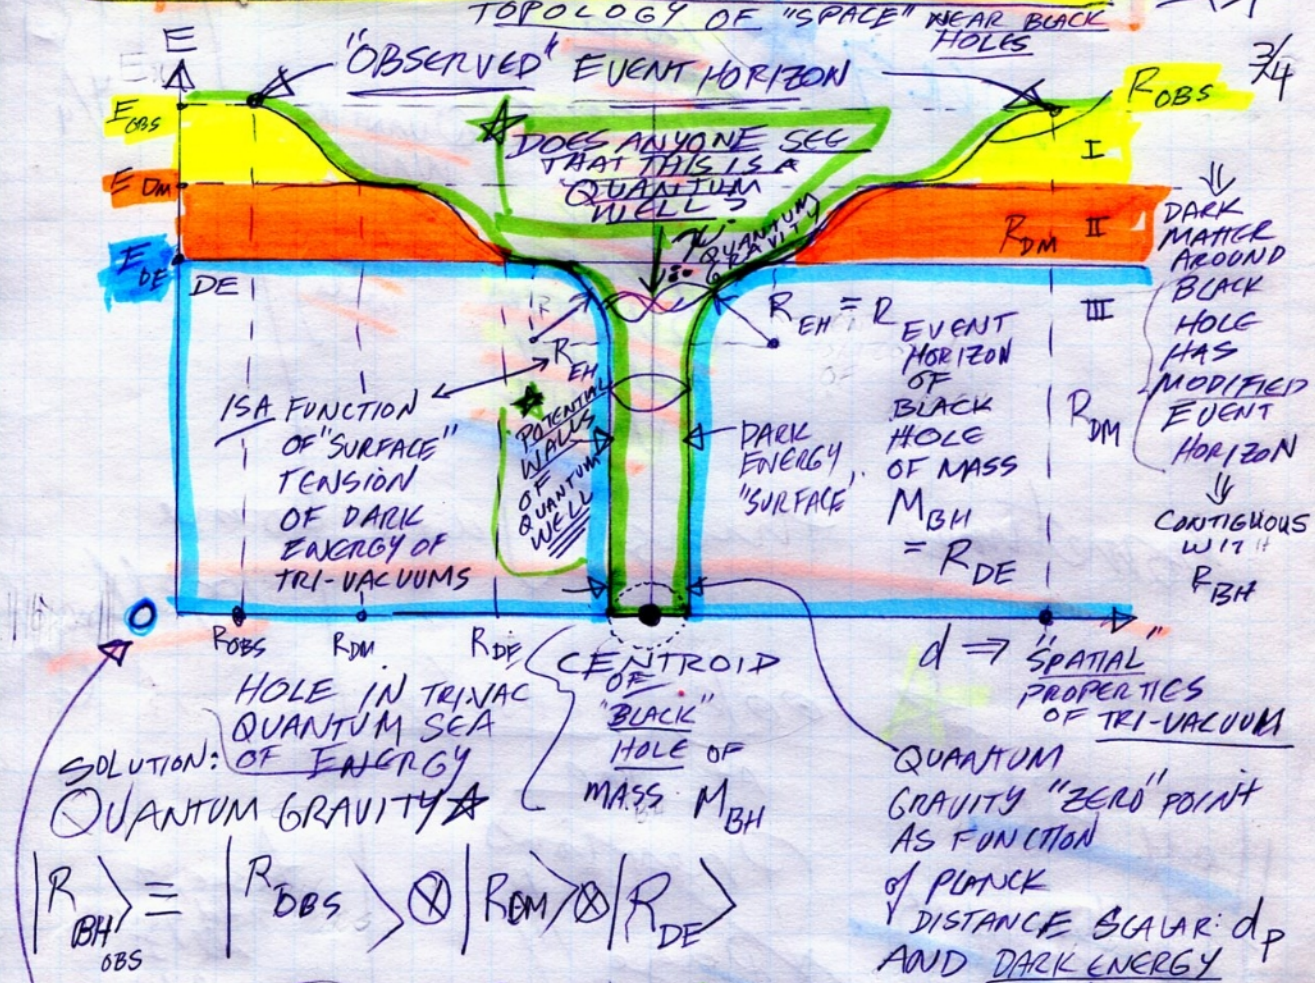 TOPOLOGY OF "SPACE" NEAR BLACK
HOLES
3/4
E
"OBSERVED" EVENT HORIZON
R OBS
E OBS
E DM
E DE
DE
DOES ANYONE SEE
THAT THIS IS A
QUANTUM
WELL?
QUANTUM
GRAVITY
I
II
III
R DM
DARK
MATTER
AROUND
BLACK
HOLE
HAS
MODIFIED
EVENT
HORIZON
CONTIGUOUS
WITH
R BH
R EH = R
EVENT
HORIZON
OF
BLACK
HOLE
OF MASS
M BH
= R DE
R DM
R EH
IS A FUNCTION
OF "SURFACE"
TENSION
OF DARK
ENERGY OF
TRI-VACUUMS
POTENTIAL
WALLS
OF
QUANTUM
WELL
DARK
ENERGY
"SURFACE"
O
R OBS
R DM
R DE
d ⇒ "SPATIAL"
PROPERTIES
OF TRI-VACUUM
CENTROID
OF
"BLACK"
HOLE OF
MASS M BH
HOLE IN TRI-VAC
QUANTUM SEA
OF ENERGY
SOLUTION:
QUANTUM GRAVITY
|R BH OBS> = |R OBS> ⊗ |R DM> ⊗ |R DE>
QUANTUM
GRAVITY "ZERO" POINT
AS FUNCTION
of PLANCK
DISTANCE SCALAR: d p
AND DARK ENERGY